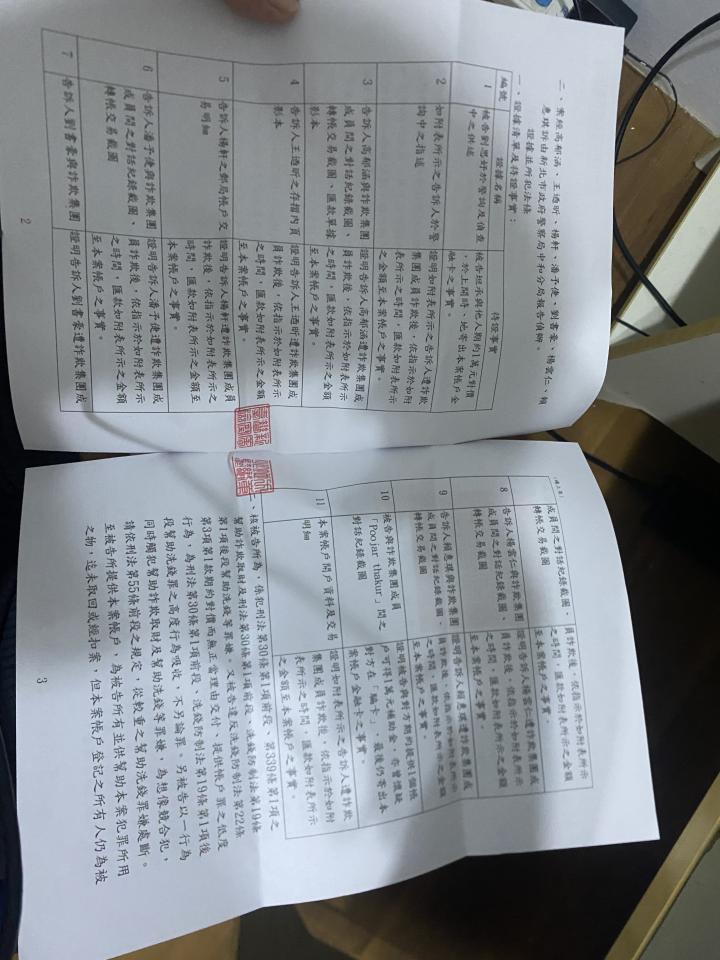 二、案經高郁涵、王迺昕、楊軒、潘予倢、劉書豪、楊雲仁、賴
惠琪訴由新北市政府警察局中和分局報告偵辦。
證據並所犯法條
一、證據清單及待證事實：
編號 證據名稱 待證事實
1 被告劉思妤於警詢及偵查 被告坦承與他人期約1萬元對價
中之供述 ，於上開時、地寄出本案帳戶金
融卡之事實。
2 如附表所示之告訴人於警 證明如附表所示之告訴人遭詐欺
詢中之指述 集團成員詐欺後，依指示於如附
表所示之時間，匯款如附表所示
之金額至本案帳戶之事實。
3 告訴人高郁涵與詐欺集團 證明告訴人高郁涵遭詐欺集團成
成員間之對話紀錄截圖、 員詐欺後，依指示於如附表所示
轉帳交易截圖、匯款單據 之時間，匯款如附表所示之金額
影本 至本案帳戶之事實。
4 告訴人王迺昕之存摺內頁 證明告訴人王迺昕遭詐欺集團成
影本 員詐欺後，依指示於如附表所示
之時間，匯款如附表所示之金額
至本案帳戶之事實。
5 告訴人楊軒之郵局帳戶交 證明告訴人楊軒遭詐欺集團成員
易明細 詐欺後，依指示於如附表所示之
時間，匯款如附表所示之金額至
本案帳戶之事實。
6 告訴人潘予倢與詐欺集團 證明告訴人潘予倢遭詐欺集團成
成員間之對話紀錄截圖、 員詐欺後，依指示於如附表所示
轉帳交易截圖 之時間，匯款如附表所示之金額
至本案帳戶之事實。
7 告訴人劉書豪與詐欺集團 證明告訴人劉書豪遭詐欺集團成
2
(續上頁)
成員間之對話紀錄截圖、 員詐欺後，依指示於如附表所示
轉帳交易截圖 之時間，匯款如附表所示之金額
至本案帳戶之事實。
8 告訴人楊雲仁與詐欺集團 證明告訴人楊雲仁遭詐欺集團成
成員間之對話紀錄截圖、 員詐欺後，依指示於如附表所示
轉帳交易截圖 之時間，匯款如附表所示之金額
至本案帳戶之事實。
9 告訴人賴惠琪與詐欺集團 證明告訴人賴惠琪遭詐欺集團成
成員間之對話紀錄截圖、 員詐欺後，依指示於如附表所示
轉帳交易截圖 之時間，匯款如附表所示之金額
至本案帳戶之事實。
10 被告與詐欺集團成員 證明被告與對方期約提供1個帳
「Poojar thakur」間之 戶可得1萬元補助金，亦曾懷疑
對話紀錄截圖 對方在「騙卡」，最後仍寄出本
案帳戶金融卡之事實。
11 本案帳戶開戶資料及交易 證明如附表所示之告訴人遭詐欺
明細 集團成員詐欺後，依指示於如附
表所示之時間，匯款如附表所示
之金額至本案帳戶之事實。
二、核被告所為，係犯刑法第30條第1項前段、第339條第1項之
幫助詐欺取財及刑法第30條第1項前段、洗錢防制法第19條
第1項後段幫助洗錢等罪嫌。又被告違反洗錢防制法第22條
第3項第1款期約對價而無正當理由交付、提供帳戶罪之低度
行為，為刑法第30條第1項前段、洗錢防制法第19條第1項後
段幫助洗錢罪之高度行為吸收，不另論罪。另被告以一行為
同時觸犯幫助詐欺取財及幫助洗錢等罪嫌，為想像競合犯，
請依刑法第55條前段之規定，從較重之幫助洗錢罪嫌處斷。
至被告所提供本案帳戶，為被告所有並供幫助本案犯罪所用
之物，迄未取回或經扣案，但本案帳戶登記之所有人仍為被
3